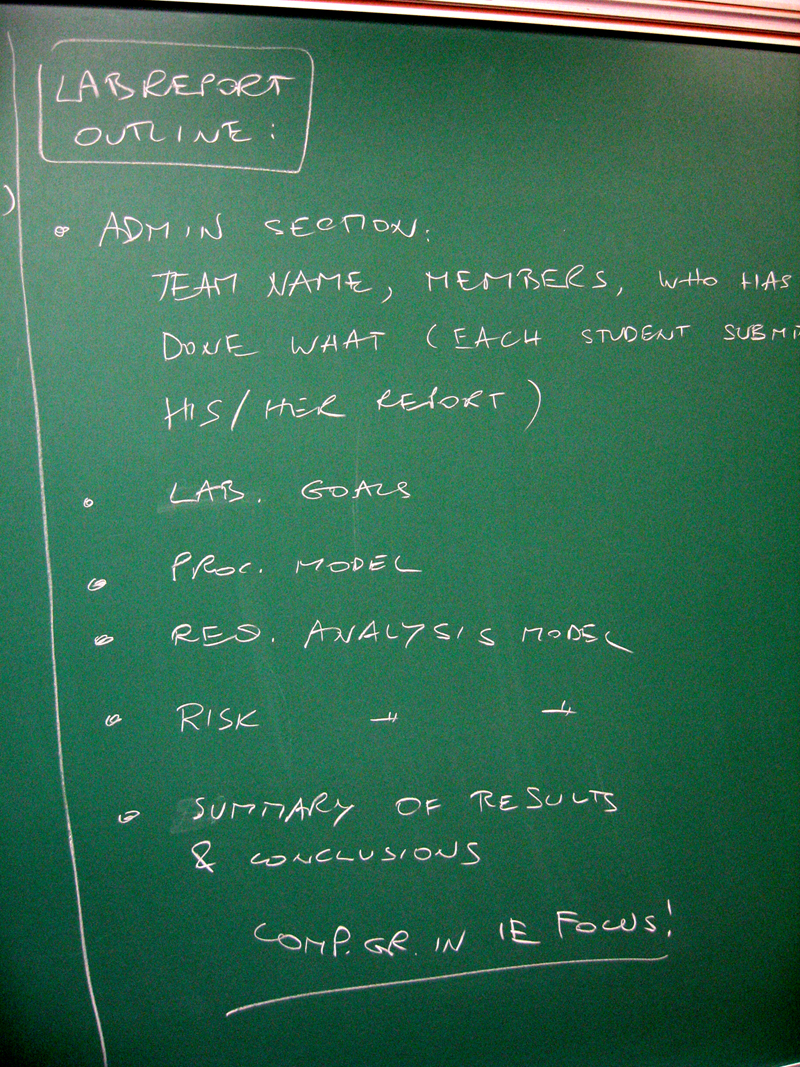 LAB REPORT
OUTLINE:
)
• ADMIN SECTION:
TEAM NAME, MEMBERS, WHO HAS
DONE WHAT (EACH STUDENT SUBMI
HIS/HER REPORT)
• LAB. GOALS
• PROC. MODEL
• REQ. ANALYSIS MODEL
• RISK -"- -"-
• SUMMARY OF RESULTS
& CONCLUSIONS
COMP. GR. IN IE FOCUS!